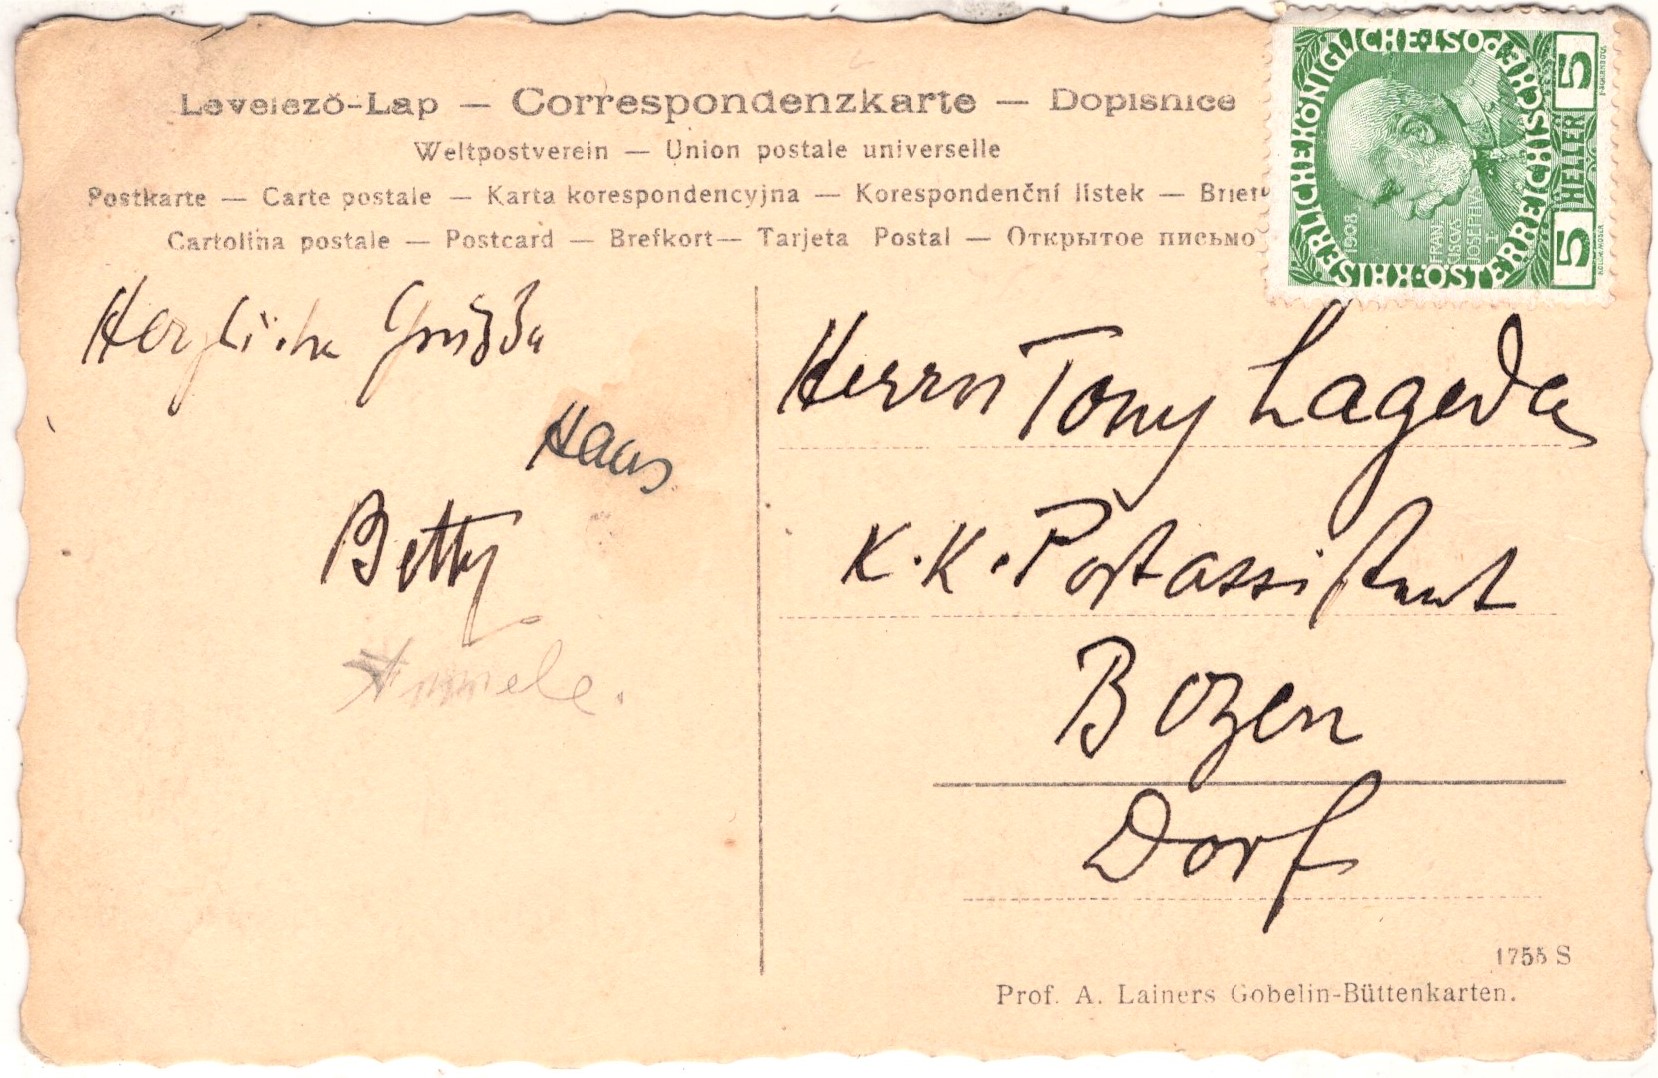 Levelező-Lap — Correspondenzkarte — Dopisnice
Weltpostverein — Union postale universelle
Postkarte — Carte postale — Karta korespondencyjna — Korespondenční lístek —
Cartolina postale — Postcard — Brefkort— Tarjeta Postal — Открытое письмо
KAISERLICHE KÖNIGLICHE ÖSTERREICHISCHE POST
5 HELLER 5
1908
FRAN
CISCVS
IOSEPHVS
I
Herzliche Grüße
Hans
Betty
Herrn Tony Lageda
K. K. Postassistent
Bozen
Dorf
1755 S
Prof. A. Lainers Gobelin-Büttenkarten.